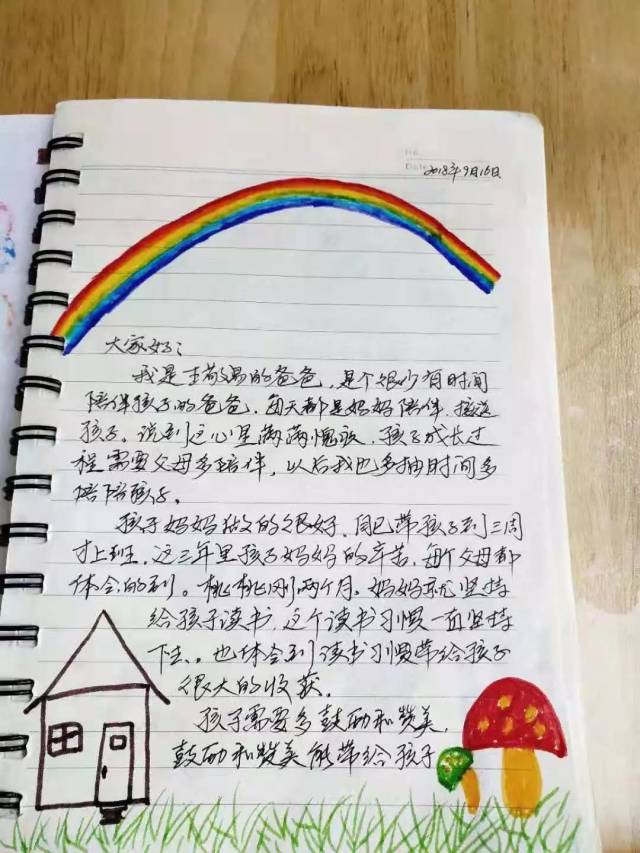 No.
Date 2018年9月16日
大家好：
我是王敬易的爸爸，是个很少有时间
陪伴孩子的爸爸，每天都是妈妈陪伴、接送
孩子。说到这心里满满愧疚，孩子成长过
程需要父母多陪伴，以后我也多抽时间多
陪陪孩子。
孩子妈妈做的很好，自己带孩子到三周
才上班，这三年里孩子妈妈的辛苦，每个父母都
体会的到。桃桃刚两个月，妈妈就坚持
给孩子读书，这个读书习惯一直坚持
下去，也体会到读书习惯带给孩子
很大的收获。
孩子需要多鼓励和赞美，
鼓励和赞美能带给孩子